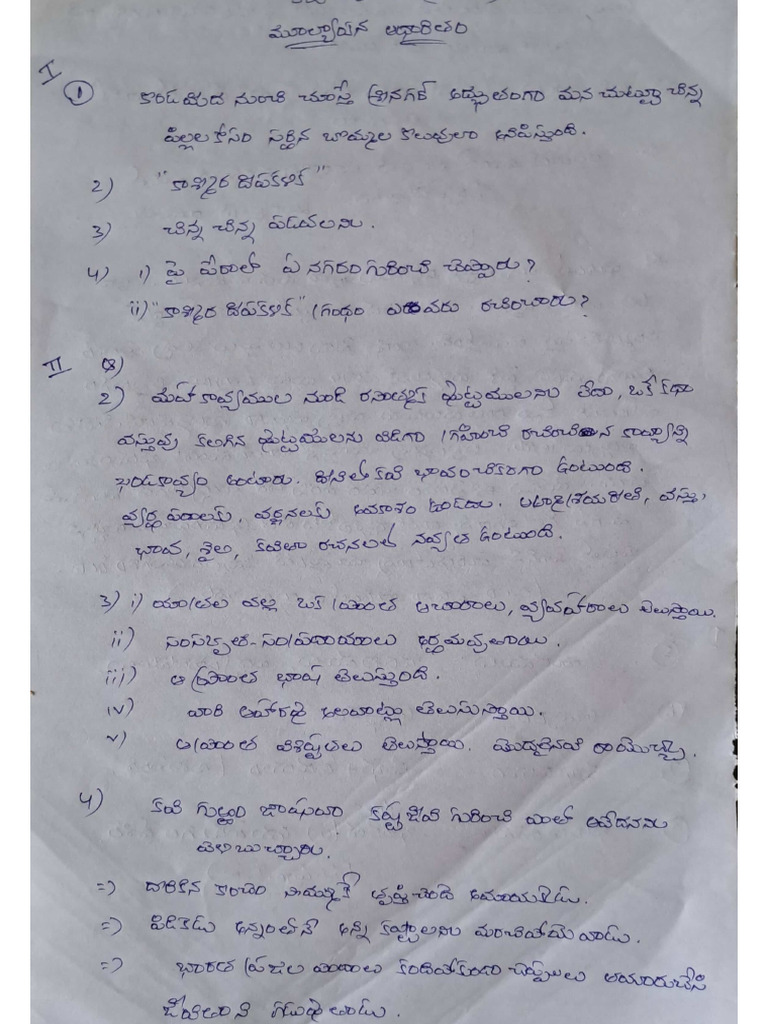 మూల్యాంకన ఆధారితం
I
1 కొండమీద నుంచి చూస్తే శ్రీనగర్ అద్భుతంగా మన చుట్టూ చిన్న
పిల్లలకోసం సర్దిన బొమ్మల కొలువులా అనిపిస్తుంది.
2) "కాశ్మీర దీపకళిక"
3) చిన్న చిన్న పడవలను.
4) i) పై పేరాలో ఏ నగరం గురించి చెప్పారు?
ii) "కాశ్మీర దీపకళిక" గ్రంథం ఎవరు రచించారు?
II
2) మహాకావ్యముల నుండి రసాత్మక ఘట్టములను లేదా, ఒకే కథా
వస్తువు కలిగిన ఘట్టములను విడిగా గ్రహించి రచించిన కావ్యాన్ని
ఖండకావ్యం అంటారు. దీనిలో కవి భావం చికరగా ఉంటుంది.
వ్యర్థ పదాలకు, వర్ణనలకు అవకాశం ఉండదు. వస్తు,
భావ, శైలి, కవితా రచనలలో నవ్యత ఉంటుంది.
3) i) యాత్రల వల్ల ఒక ప్రాంత ఆచారాలు, వ్యవహారాలు తెలుస్తాయి.
ii) సంస్కృతి-సంప్రదాయాలు అర్థమవుతాయి.
iii) ఆ ప్రాంత భాష తెలుస్తుంది.
iv) వారి ఆహారపు అలవాట్లు తెలుసుస్తాయి.
v) ఆ ప్రాంత విశిష్టతలు తెలుస్తాయి. మొదలైనవి రాయొచ్చు.
4) కవి గుఱ్ఱం జాషువా కష్టజీవి గురించి ఎంతో ఆవేదనను
వెలిబుచ్చారు.
=) దొరికిన కొంచెం సొమ్ముకే తృప్తి చెందే అమాయకుడు.
=) పిడికెడు అన్నంతోనే అన్ని కష్టాలను మరచిపోయేవాడు.
=) భారత ప్రజల పాదాలు కందిపోకుండా చెప్పులు తయారుచేసి
జీవితాన్ని గడుపుతాడు.